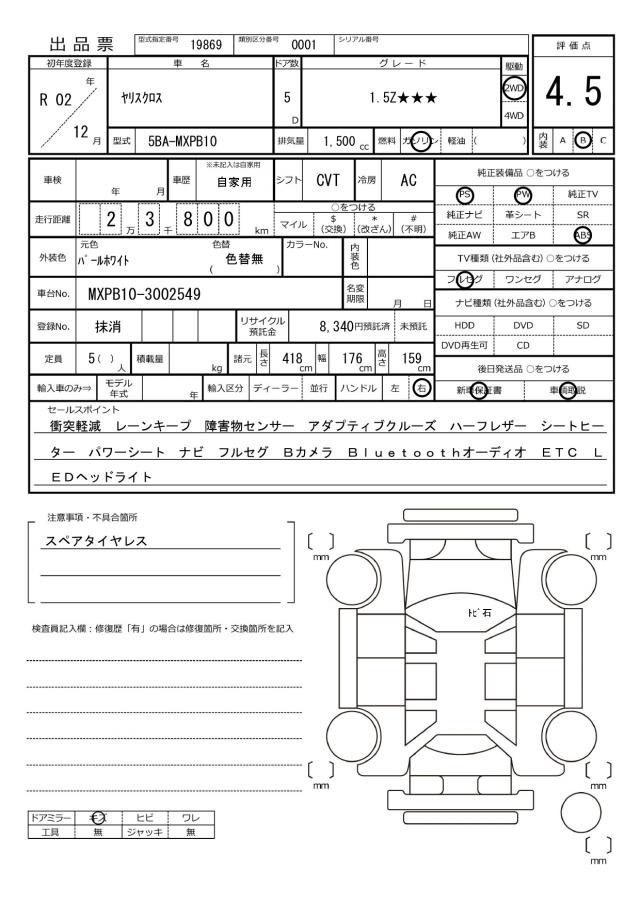 出品票 型式指定番号 19869 類別区分番号 0001 シリアル番号
評価点
4.5
初年度登録 車名 ドア数 グレード 駆動
R 02 年 12 月 ヤリスクロス 5 D 1.5Z★★★ 2WD
4WD
型式 5BA-MXPB10 排気量 1,500 cc 燃料 ガソリン 軽油 ( ) 内装 A B C
車検 年 月 車歴 ※未記入は自家用 自家用 シフト CVT 冷房 AC
純正装備品 ○をつける
PS PW 純正TV
純正ナビ 革シート SR
純正AW エアB ABS
走行距離 2 万 3 千 8 0 0 km ○をつける
マイル $(交換) *(改ざん) #(不明)
外装色 元色 パールホワイト 色替 ( 色替無 ) カラーNo. 内装色
TV種類(社外品含む) ○をつける
フルセグ ワンセグ アナログ
車台No. MXPB10-3002549 名変期限 月 日
ナビ種類(社外品含む) ○をつける
HDD DVD SD
DVD再生可 CD
登録No. 抹消 リサイクル預託金 8,340円預託済 未預託
定員 5( ) 人 積載量 kg 諸元 長さ 418 cm 幅 176 cm 高さ 159 cm
後日発送品 ○をつける
新車保証書 車輌取説
輸入車のみ⇒ モデル年式 年 輸入区分 ディーラー 並行 ハンドル 左 右
セールスポイント
衝突軽減 レーンキープ 障害物センサー アダプティブクルーズ ハーフレザー シートヒー
ター パワーシート ナビ フルセグ Bカメラ Bluetoothオーディオ ETC L
EDヘッドライト
注意事項・不具合箇所
スペアタイヤレス
検査員記入欄：修復歴「有」の場合は修復箇所・交換箇所を記入
〔 〕
mm
〔 〕
mm
ﾄﾋﾞ石
〔 〕
mm
〔 〕
mm
〔 〕
mm
ドアミラー キズ ヒビ ワレ
工具 無 ジャッキ 無